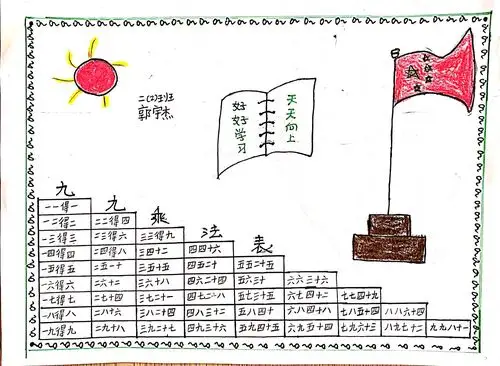 二(2)班
郭宇杰
好好学习
天天向上
九九乘法表
一一得一
一二得二 二二得四
一三得三 二三得六 三三得九
一四得四 二四得八 三四十二 四四十六
一五得五 二五一十 三五十五 四五二十 五五二十五
一六得六 二六十二 三六十八 四六二十四 五六三十 六六三十六
一七得七 二七十四 三七二十一 四七二十八 五七三十五 六七四十二 七七四十九
一八得八 二八十六 三八二十四 四八三十二 五八四十 六八四十八 七八五十六 八八六十四
一九得九 二九十八 三九二十七 四九三十六 五九四十五 六九五十四 七九六十三 八九七十二 九九八十一